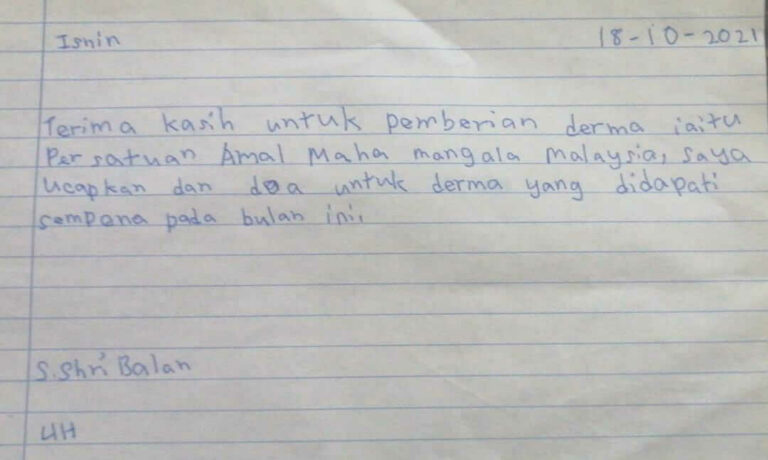 Isnin 18-10-2021
Terima kasih untuk pemberian derma iaitu
Persatuan Amal Maha mangala malaysia, saya
ucapkan dan doa untuk derma yang didapati
sempena pada bulan ini.
S. Shri Balan
4H